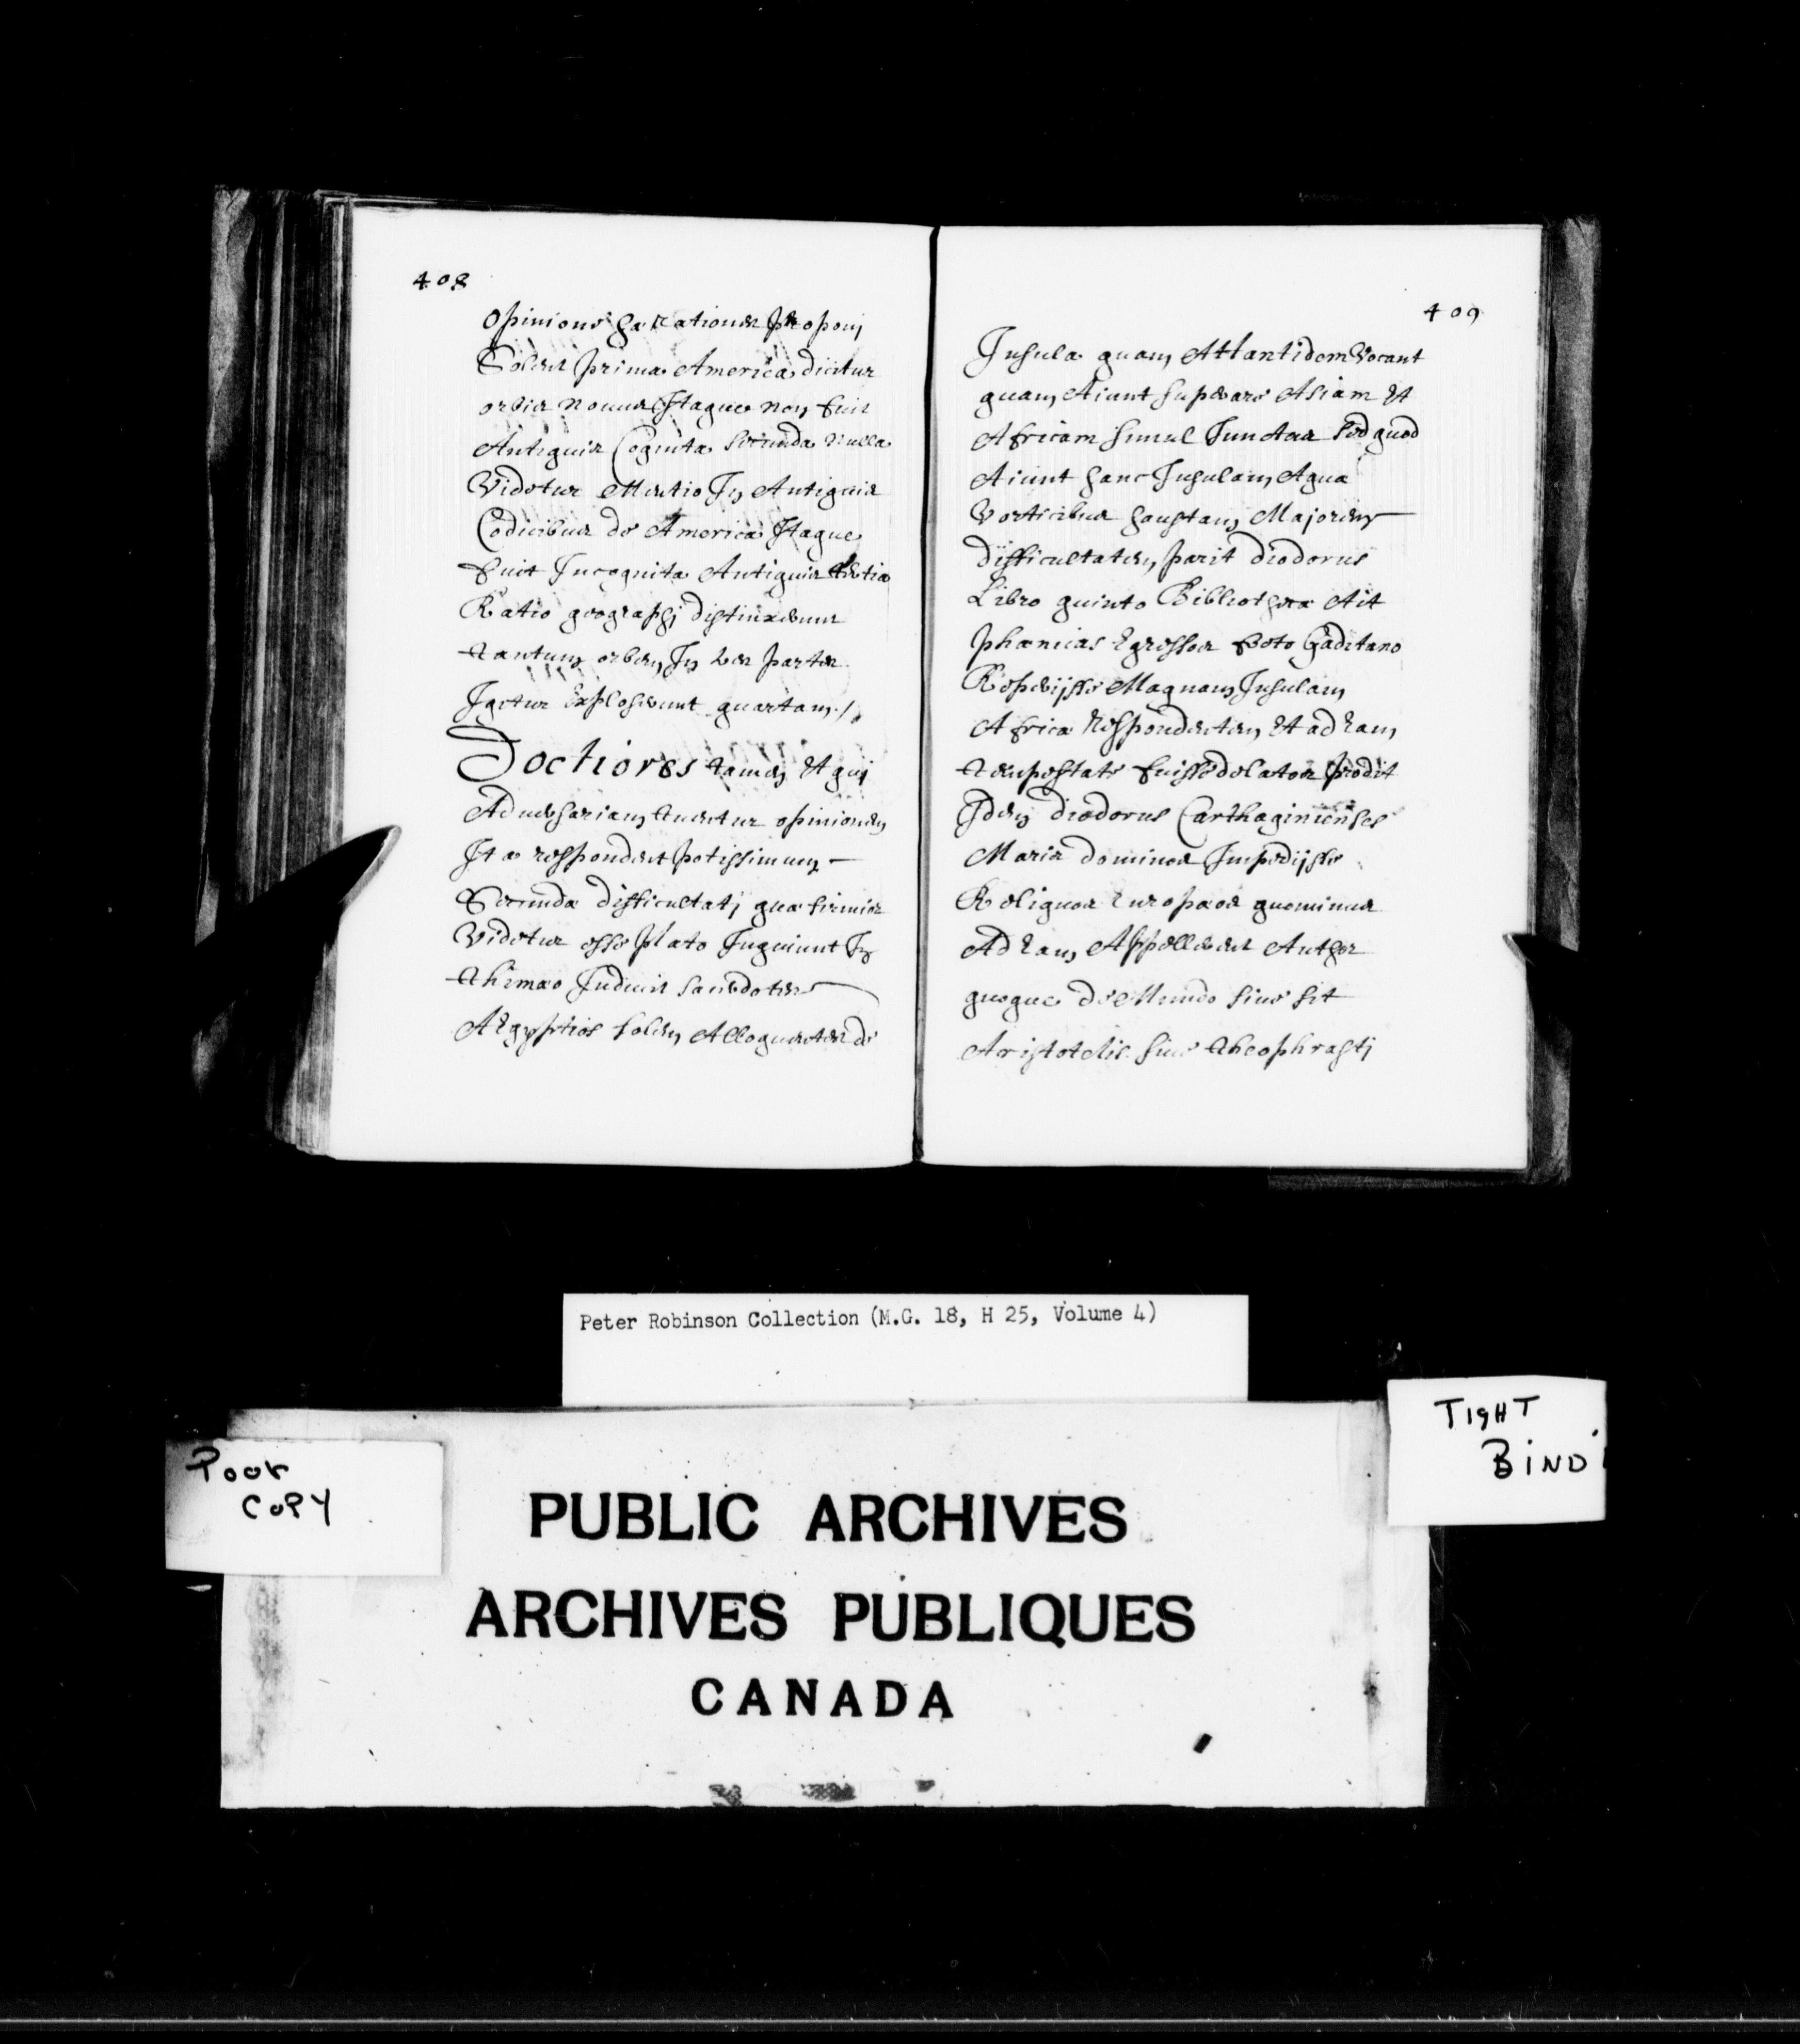 408
opinione hæ rationes proponj
Solent prima America dicitur
orbis nouus Itaque non fuit
Antiquis Cognita secunda nulla
Videtur Mentio In Antiquis
Codicibus de America Itaque
fuit Incognita Antiquis tertia
Ratio geographj distinxerunt
tantum orbem In tres partes
Igitur Exploserunt quartam./.
Doctiores tamen Et quj
Aduersariam tuentur opinionem
Ita respondent potissimum —
Secundæ difficultatj quæ firmior
Videtur esse plato Inquiunt In
thimæo Inducit sacerdotes
AEgyptios solem Alloquentes de
409
Insula quam Atlantidem Vocant
quam Aiunt superare Asiam Et
Africam simul Iunctas sed quod
Aiunt hanc Insulam Aqua
Vorticibus haustam Majorem
difficultatem parit diodorus
Libro quinto Bibliothecæ Ait
phænicas Egressos freto Gaditano
Reperijsse Magnam Insulam
Africæ Respondentem Et ad Eam
tempestate fuisse delatos prodit
Idem diodorus Carthaginienses
Maris dominos Impedijsse
Reliquos Europæos quominus
Ad Eam Appellerent Author
quoque de Mundo siue sit
Aristotelis siue theophrastj
Peter Robinson Collection (M.G. 18, H 25, Volume 4)
TIGHT
BIND
Poor
COPY
PUBLIC ARCHIVES
ARCHIVES PUBLIQUES
CANADA